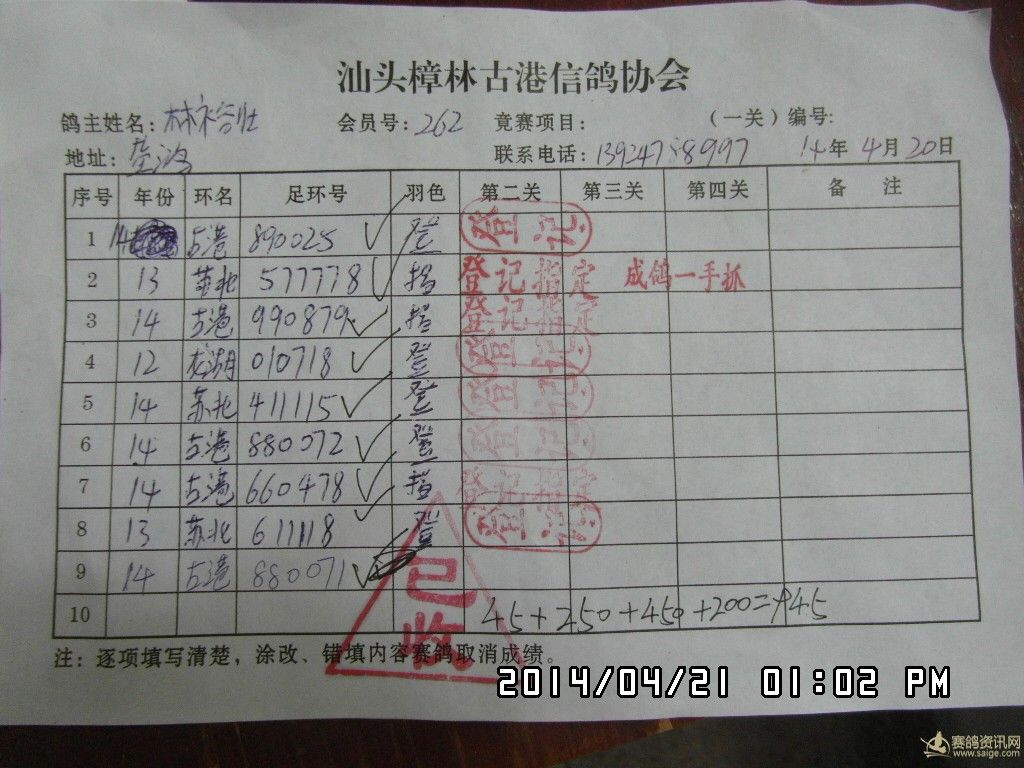 汕头樟林古港信鸽协会
鸽主姓名: 林 壮 会员号: 262 竟赛项目: （一关）编号:
地址: 联系电话: 13924758997 14年 4月20日
序号 年份 环名 足环号 羽色 第二关 第三关 第四关 备 注
1 14 古港 890025 登 登记
2 13 苏北 577778 指 登记指定 成鸽一手抓
3 14 古港 990879 指 登记指定
4 12 龙湖 010718 登 登记
5 14 苏北 411115 登 登记
6 14 古港 880072 登 登记
7 14 古港 660478 指 登记指定
8 13 苏北 611118 登 登记
9 14 古港 880071
10 45+250+450+200=945
已收
注：逐项填写清楚，涂改、错填内容赛鸽取消成绩。
2014/04/21 01:02 PM
赛鸽资讯网
www.saige.com